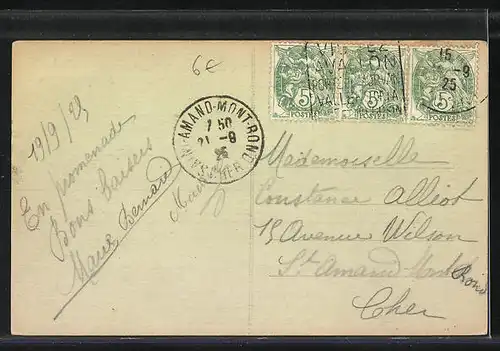 6€
19/9/25
En promenade
Bons baisers
Marie Bernard
ST-AMAND-MONT-ROND
7 50
21-9
25
CHER
AVALLON
VALLÉE
15
-9
25
5
POSTES
5
POSTES
5
POSTES
Mademoiselle
Constance Alliot
15 Avenue Wilson
St Amand Mont
Rond
Cher